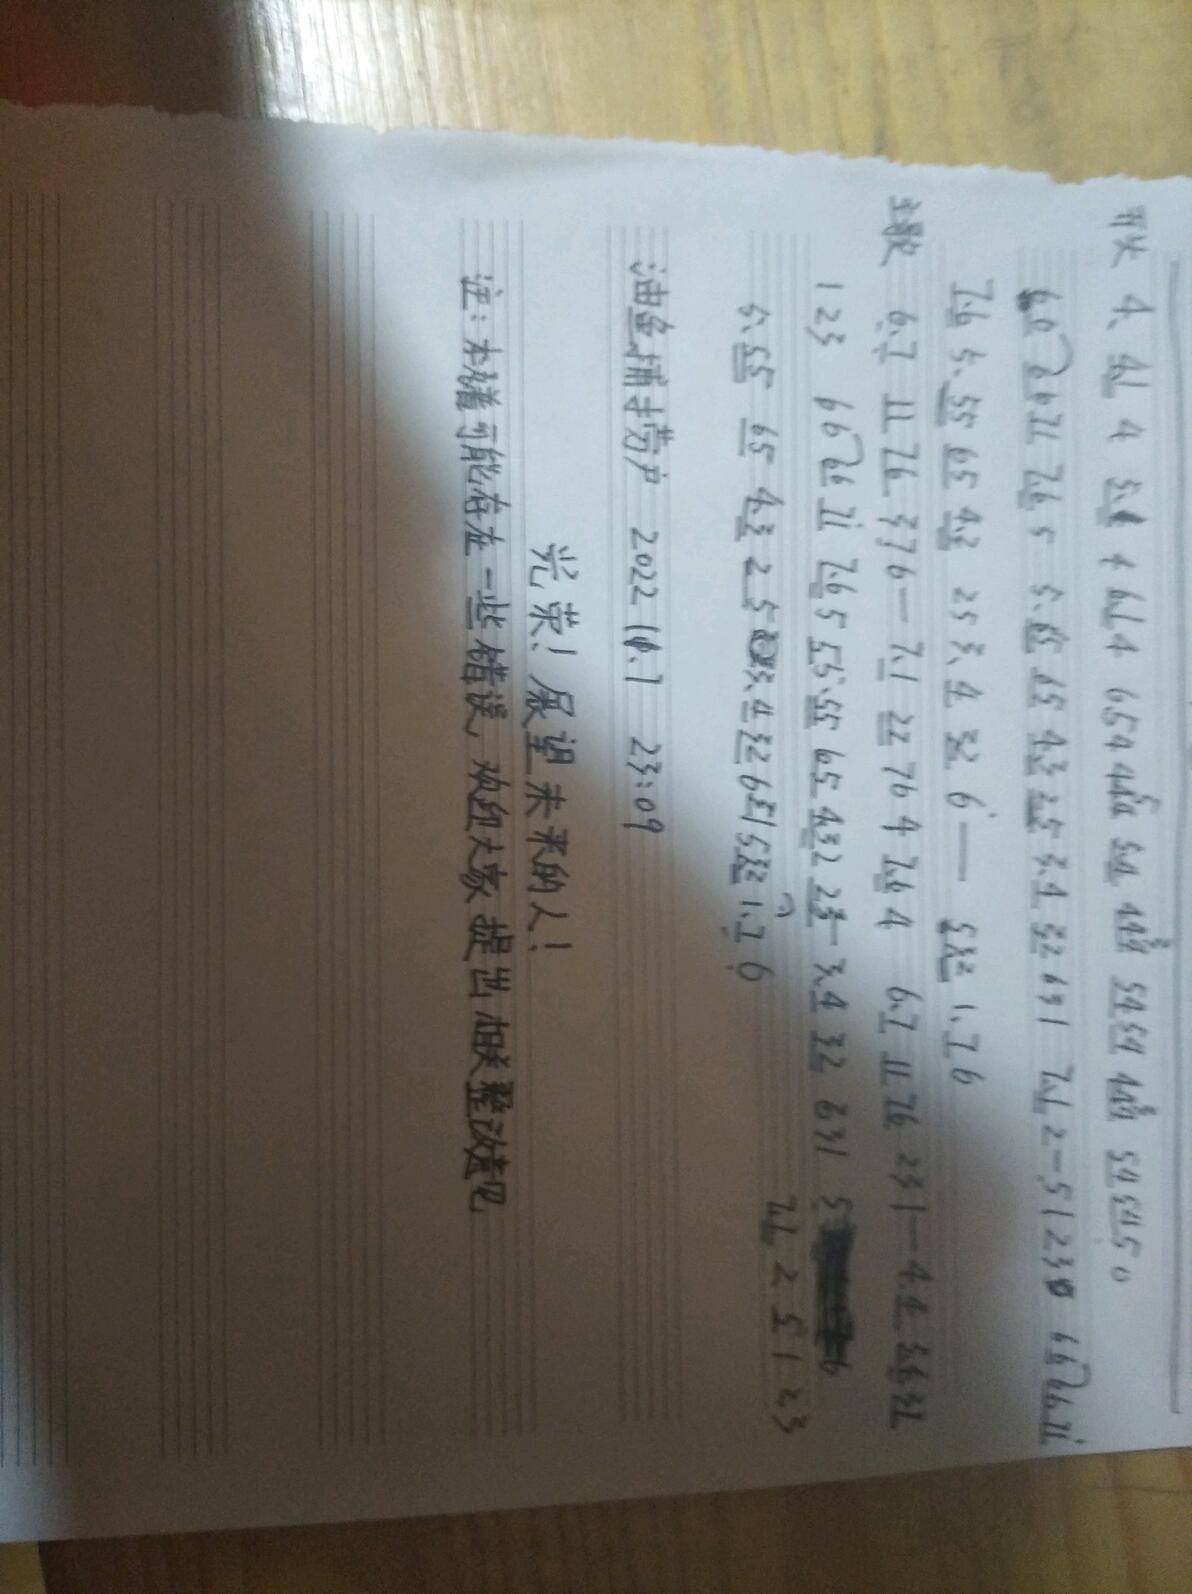 开头 4. 41 4 3.4 4 614 654 54 5454 54545 0
60 6671 7.65 5. 65 65 43 25 3.4 32 631 7.1 2－5123 6667i
7.6 5.55 65 4.3 25 3.4 32 6— 532 1.76
主歌 6.7 11 76 376－7.1 22 764 7.64 6.7 11 76 231－4.4 3 32
123 66 667i 7.65 55.55 65 432 23－3.4 32 631 5
5.55 65 4.3 2 5 3.4 32 631 532 1.76 7.1 2 5 1 23
油金捕丰劳户 2022 10.1 23:09
光荣！展望未来的人！
注：本谱可能存在一些错误，欢迎大家提出相关整改意见